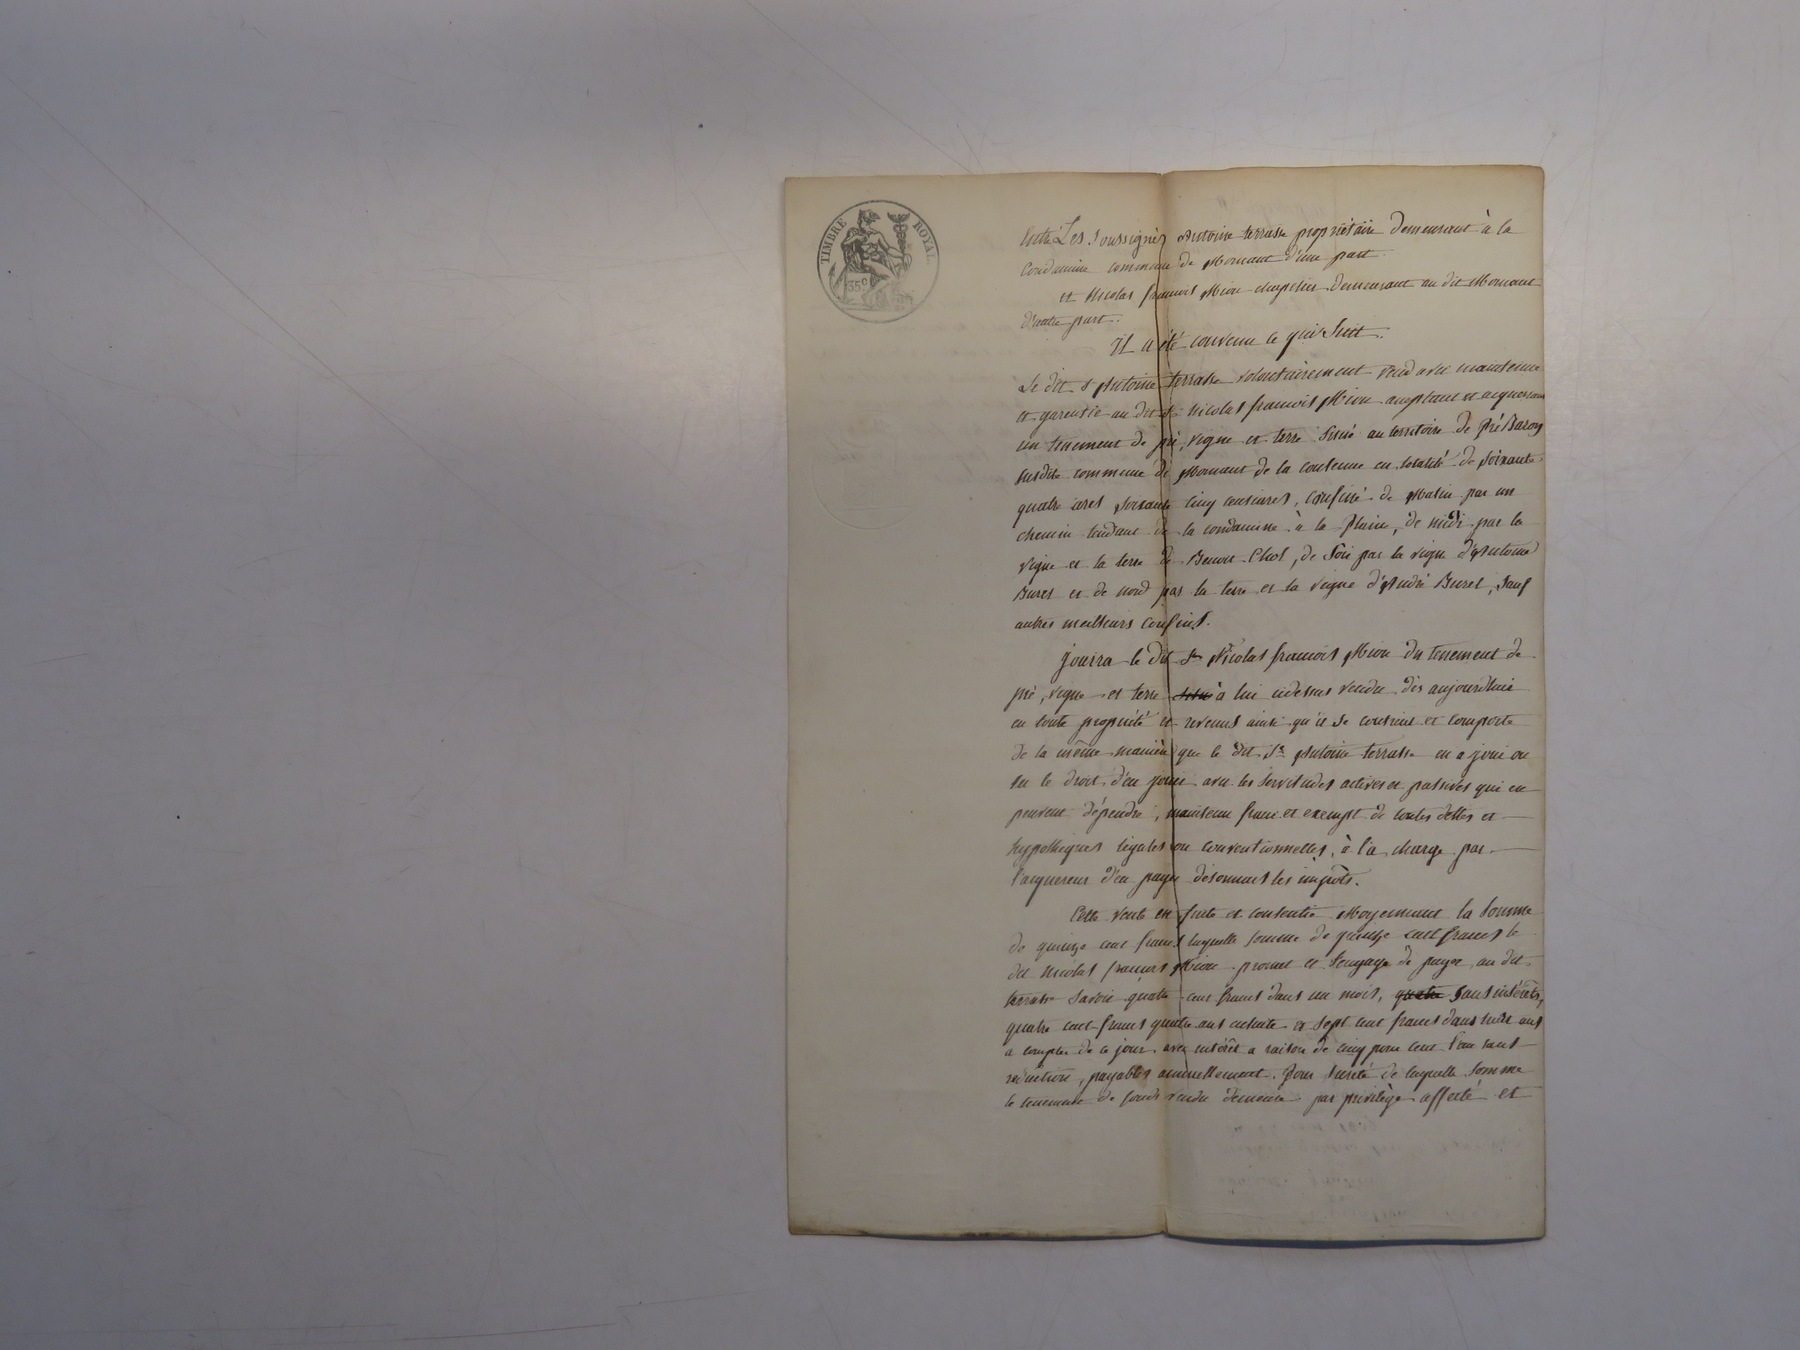 TIMBRE ROYAL
35 c
Entre Les Soussignés Antoine terrasse propriétaire demeurant à la
Condamine commune de Mornant d'une part.
et Nicolas françois Mion chapelier demeurant au dit Mornant
d'autre part.
Il a été convenu ce qui Suit.
Le dit S Antoine terrasse volontairement vend avec maintenue
et garentie au dit S. Nicolas françois Mion acceptant et acquereur
un tenement de pré, vigne et terre Situé au territoire de Pré Baron
susdite commune de Mornant de la contenue en totalité de soixante
quatre ares soixante cinq centiares, confiné de Matin par un
chemin tendant de la condamine à la Plaine, de midi par la
vigne et la terre de Benoit Chol, de Soir par la vigne d'Antoine
Burel et de nord par la terre et la vigne d'André Burel, sauf
autres meilleurs confins.
Jouira le dit Sr Nicolas françois Mion du tenement de
pré, vigne et terre situé à lui cidessus vendu dès aujourdhui
en toute propriété et revenus ainsi qu'il se contient et comporte
de la même manière que le dit Sr Antoine terrasse en a joui ou
eu le droit d'en jouir avec les servitudes actives et passives qui en
peuvent dépendre, maintenu franc et exempt de toutes dettes et
hypothèques légales ou conventionnelles, à la charge par
l'acquereur d'en payer désormais les impôts.
Cette vente est faite et consentie Moyennant la Somme
de quinze cent francs laquelle somme de quinze cent francs le
dit Nicolas françois Mion promet et s'engage de payer au dit
terrasse savoir quatre cent francs dans un mois, quatre sans intérêts,
quatre cent francs quatre ans ensuite et sept cent francs dans huit ans
a compter de ce jour avec intérêt a raison de cinq pour cent l'an sans
réduction, payables annuellement. Pour sureté de laquelle somme
le tenement de fonds vendu demeure par privilège affecté et